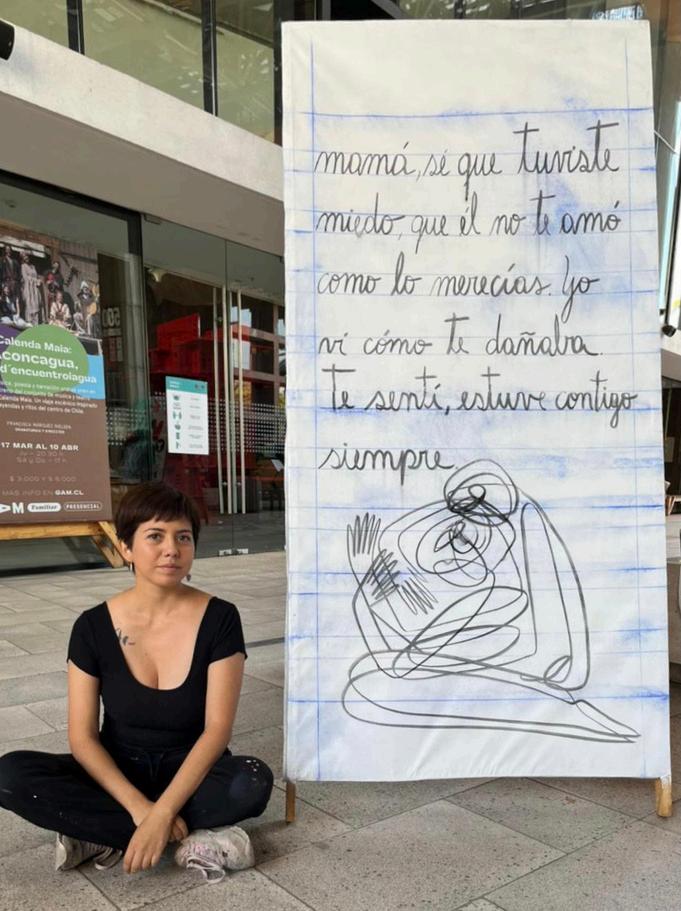 mamá, sé que tuviste
miedo, que él no te amó
como lo merecías. Yo
vi cómo te dañaba.
Te sentí, estuve contigo
siempre.
Calenda Maia:
concagua,
d´encuentro|agua
FRANCISCA MÁRQUEZ
17 MAR AL 10 ABR
$ 3.000 Y $ 6.000
MÁS INFO EN GAM.CL
Familiar
PRESENCIAL